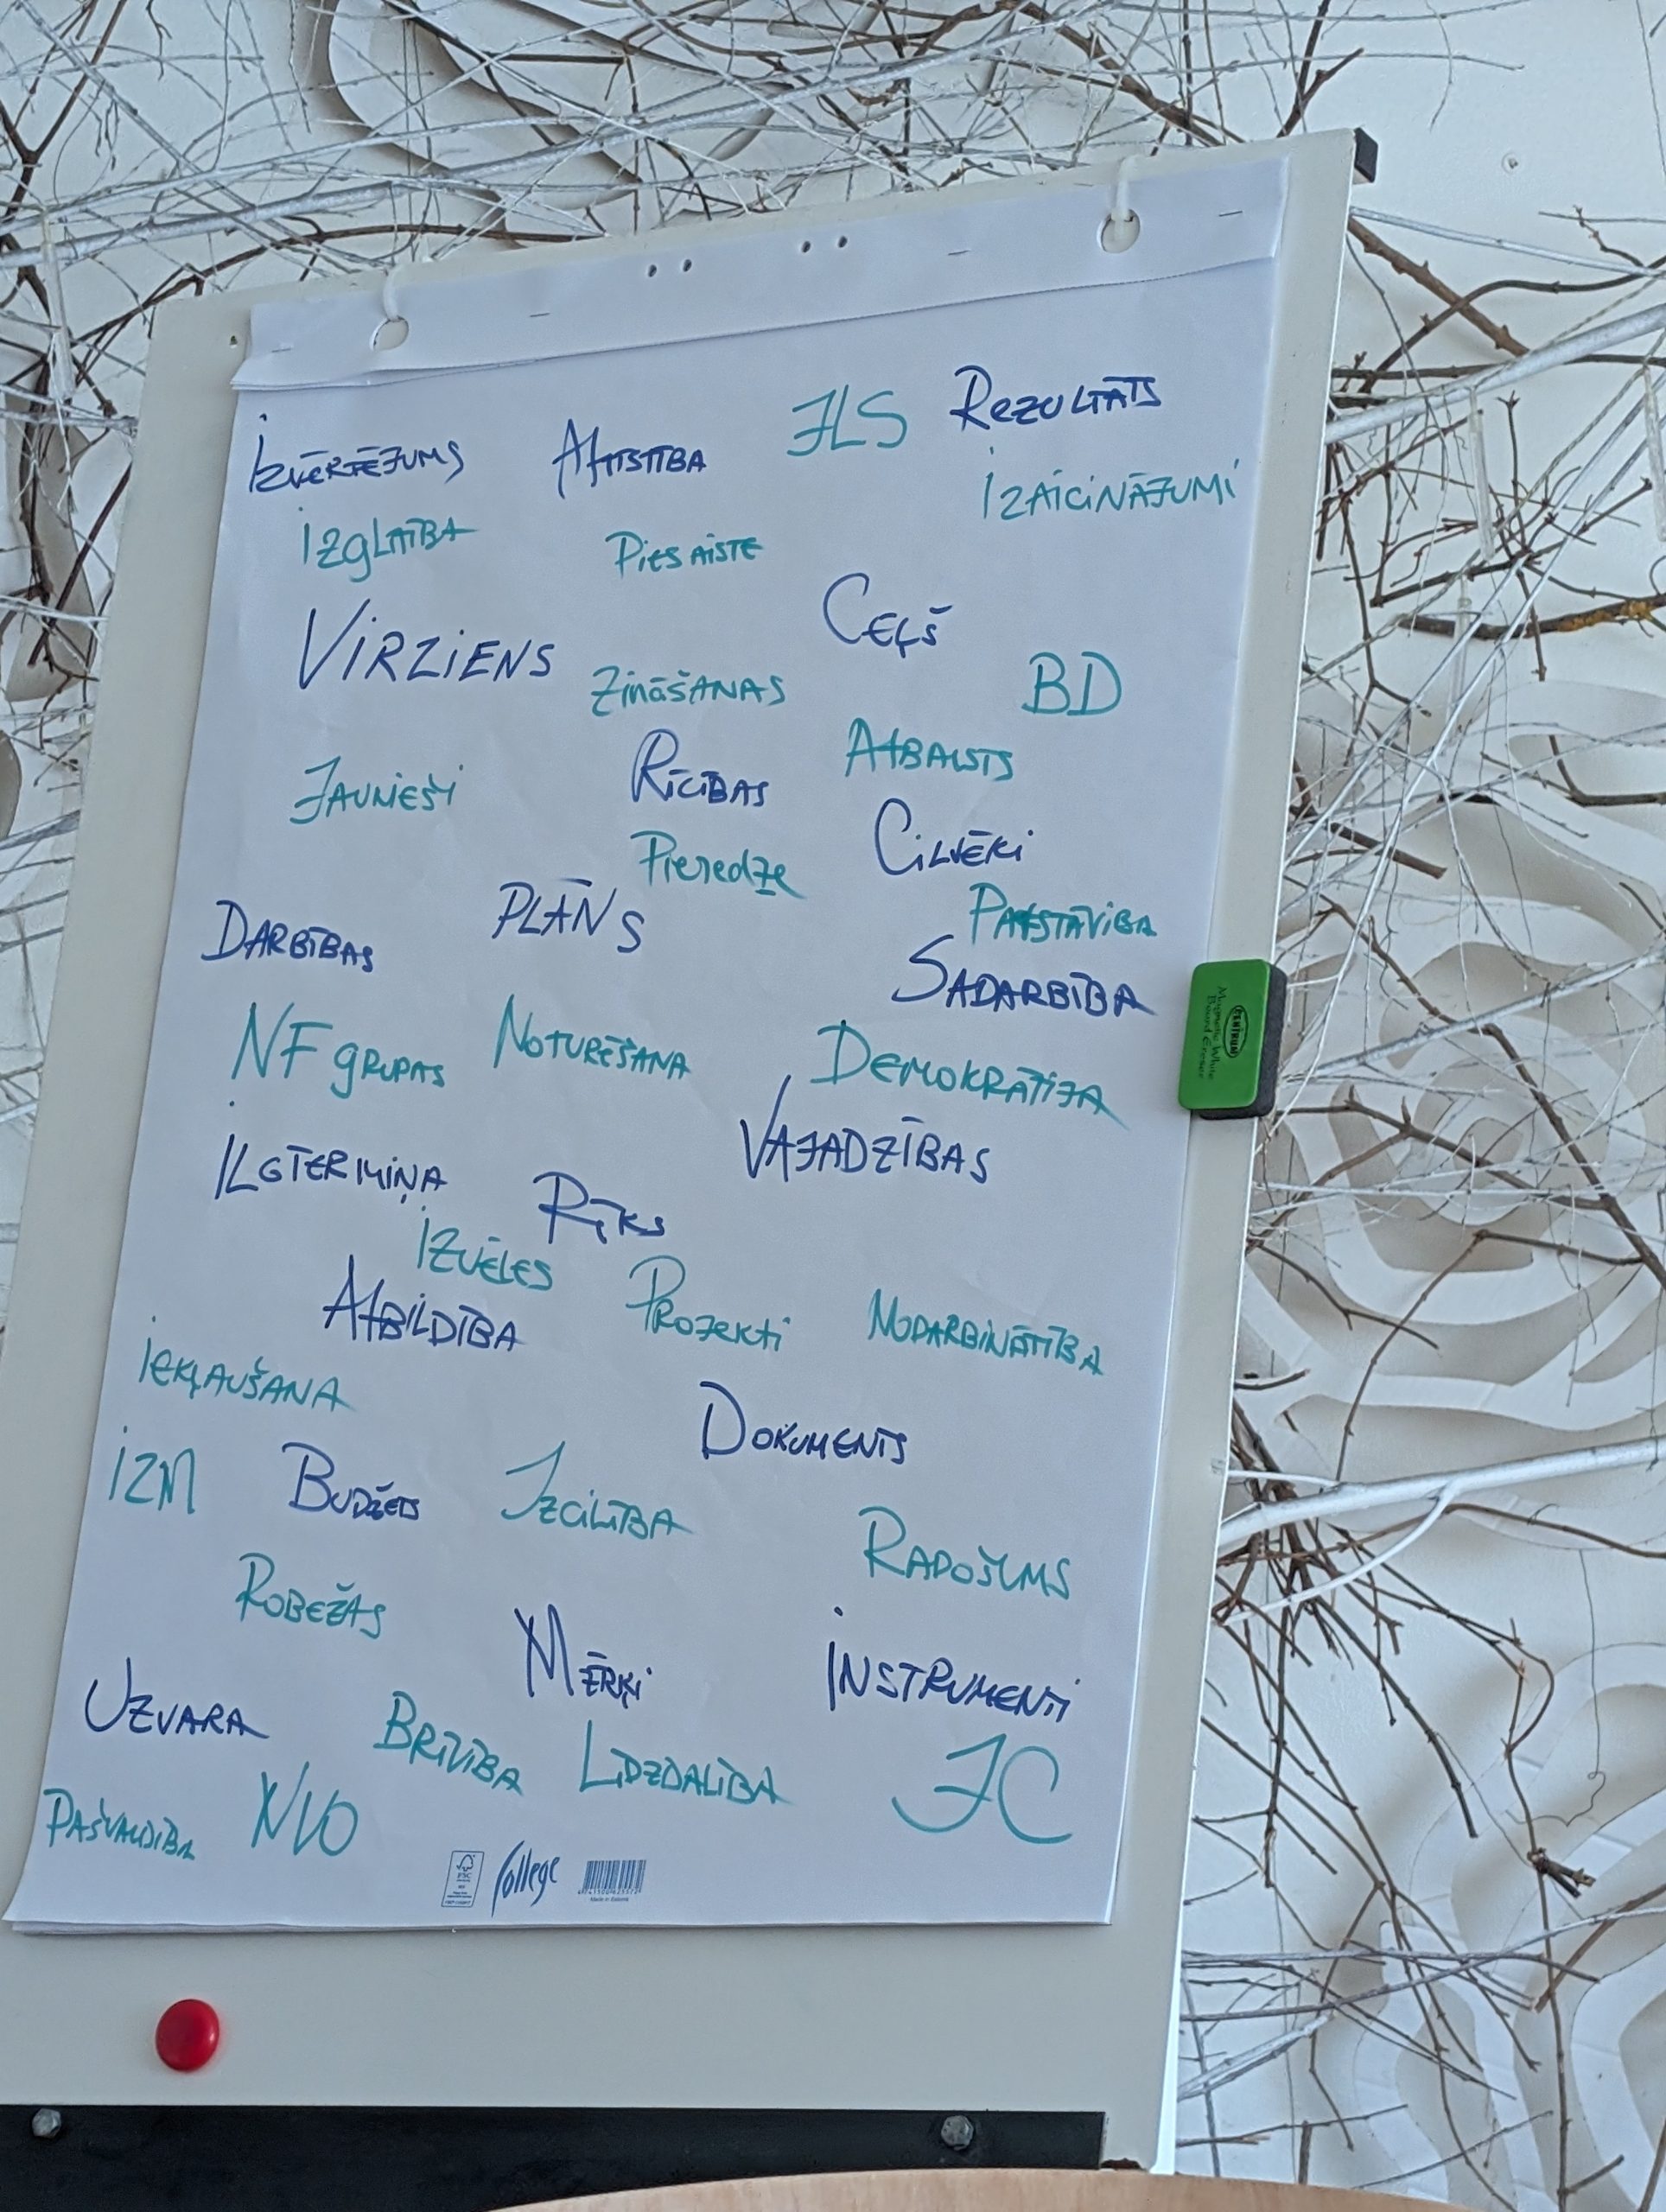 Izvērtējums Attīstība JLS Rezultāts
Izglītība Piesaiste Izaicinājumi
Virziens Ceļš
Zināšanas BD
Jaunieši Rīcības Atbalsts
Pieredze Cilvēki
Darbības PLĀNS Patstāvība
Sadarbība
NF grupas Noturēšana Demokrātija
Ilgtermiņa Vajadzības
Rīks
Izvēles
Atbildība Projekti Nodarbinātība
Iekļaušana
Dokuments
IZM Budžets Izcilība
Radošums
Robežas
Mērķi Instrumenti
Uzvara Brīvība Līdzdalība JC
Pašvaldība NVO
College
Made in Estonia
CENTRUM
Magnetic White
Board Eraser